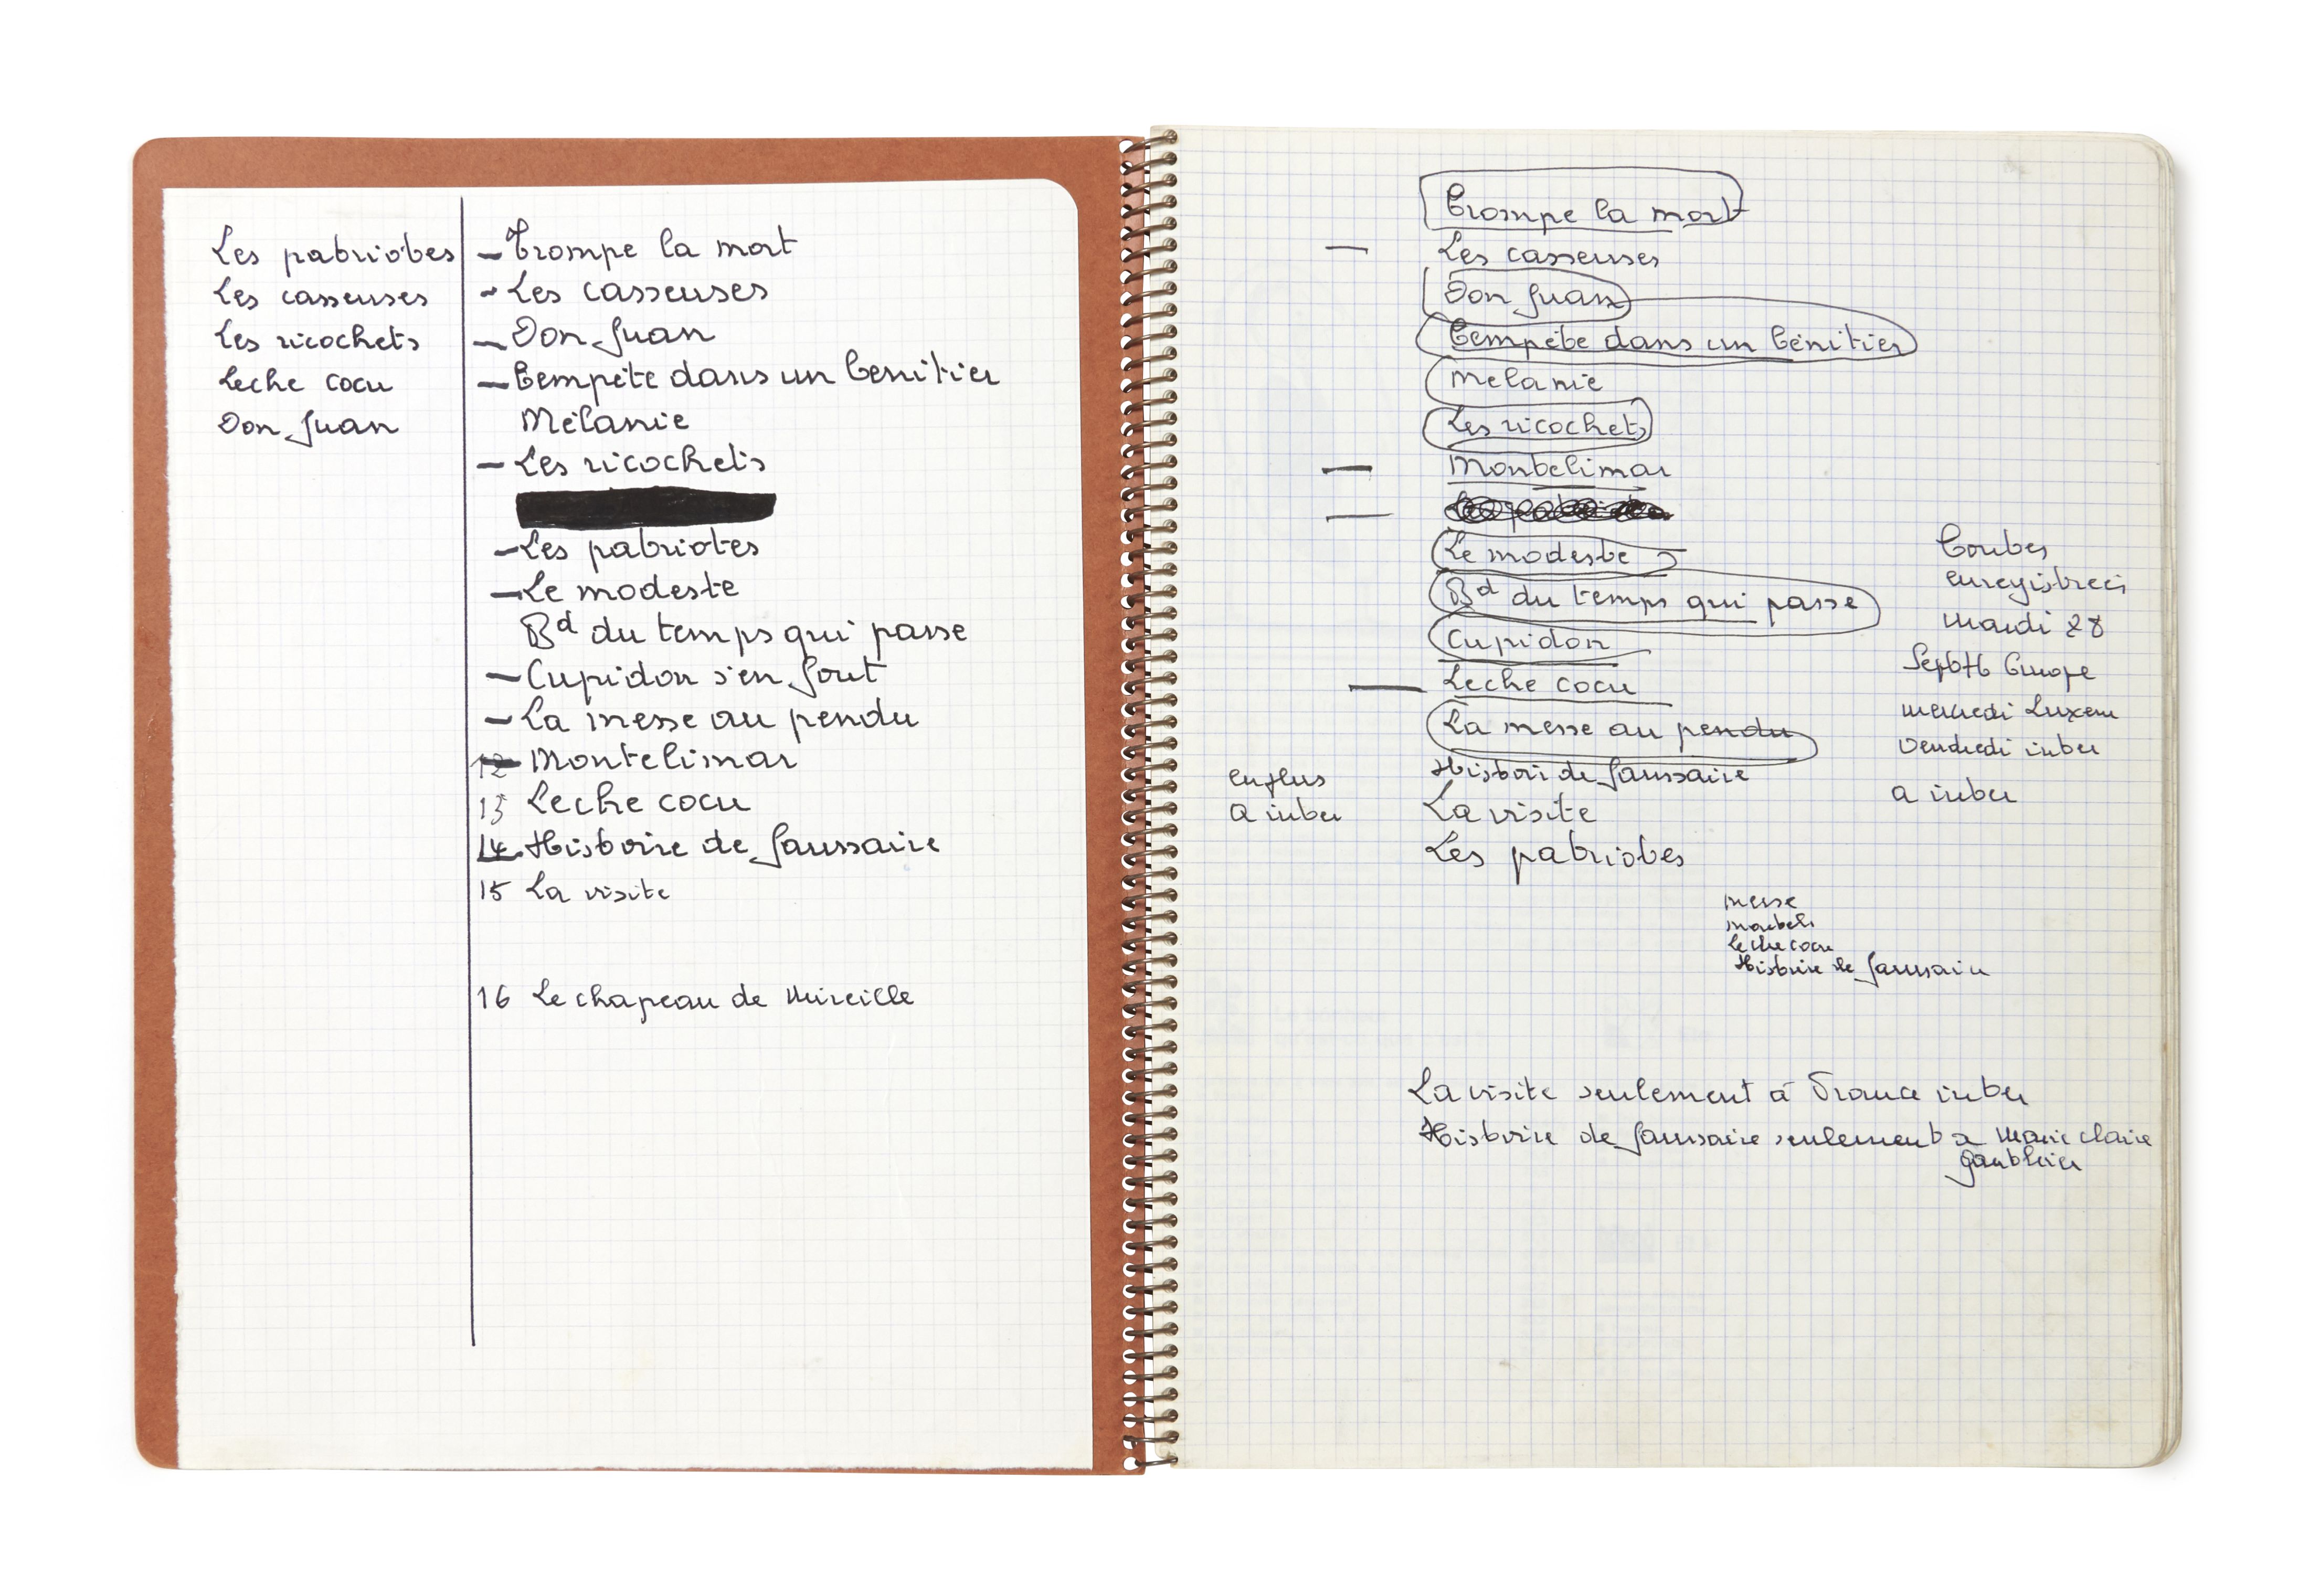 Les patriotes
Les casseuses
Les ricochets
Leche cocu
Don Juan
- Trompe la mort
- Les casseuses
- Don Juan
- Tempête dans un benitier
Mélanie
- Les ricochets
- Les patriotes
- Le modeste
Bd du temps qui passe
- Cupidon s'en fout
- La messe au pendu
12 Montelimar
13 Leche cocu
14 Histoire de faussaire
15 La visite
16 Le chapeau de Mireille
Trompe la mort
— Les casseuses
Don Juan
Tempête dans un bénitier
Melanie
Les ricochets
— Montelimar
—
Le modeste
Bd du temps qui passe
Cupidon
— Leche cocu
La messe au pendu
Histoire de faussaire
La visite
Les patriotes
en plus
a inter
Toutes
enregistrees
mardi 28
Sept Europe
mercredi Luxem
Vendredi inter
a inter
messe
monteli
Leche cocu
Histoire de faussaire
La visite seulement à France inter
Histoire de faussaire seulement a Marie claire
gauthier